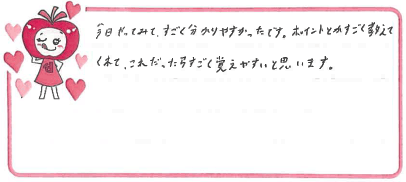 今日やってみて、すごく分かりやすかったです。ポイントとかすごく教えて
くれて、これだったらすごく覚えやすいと思います。